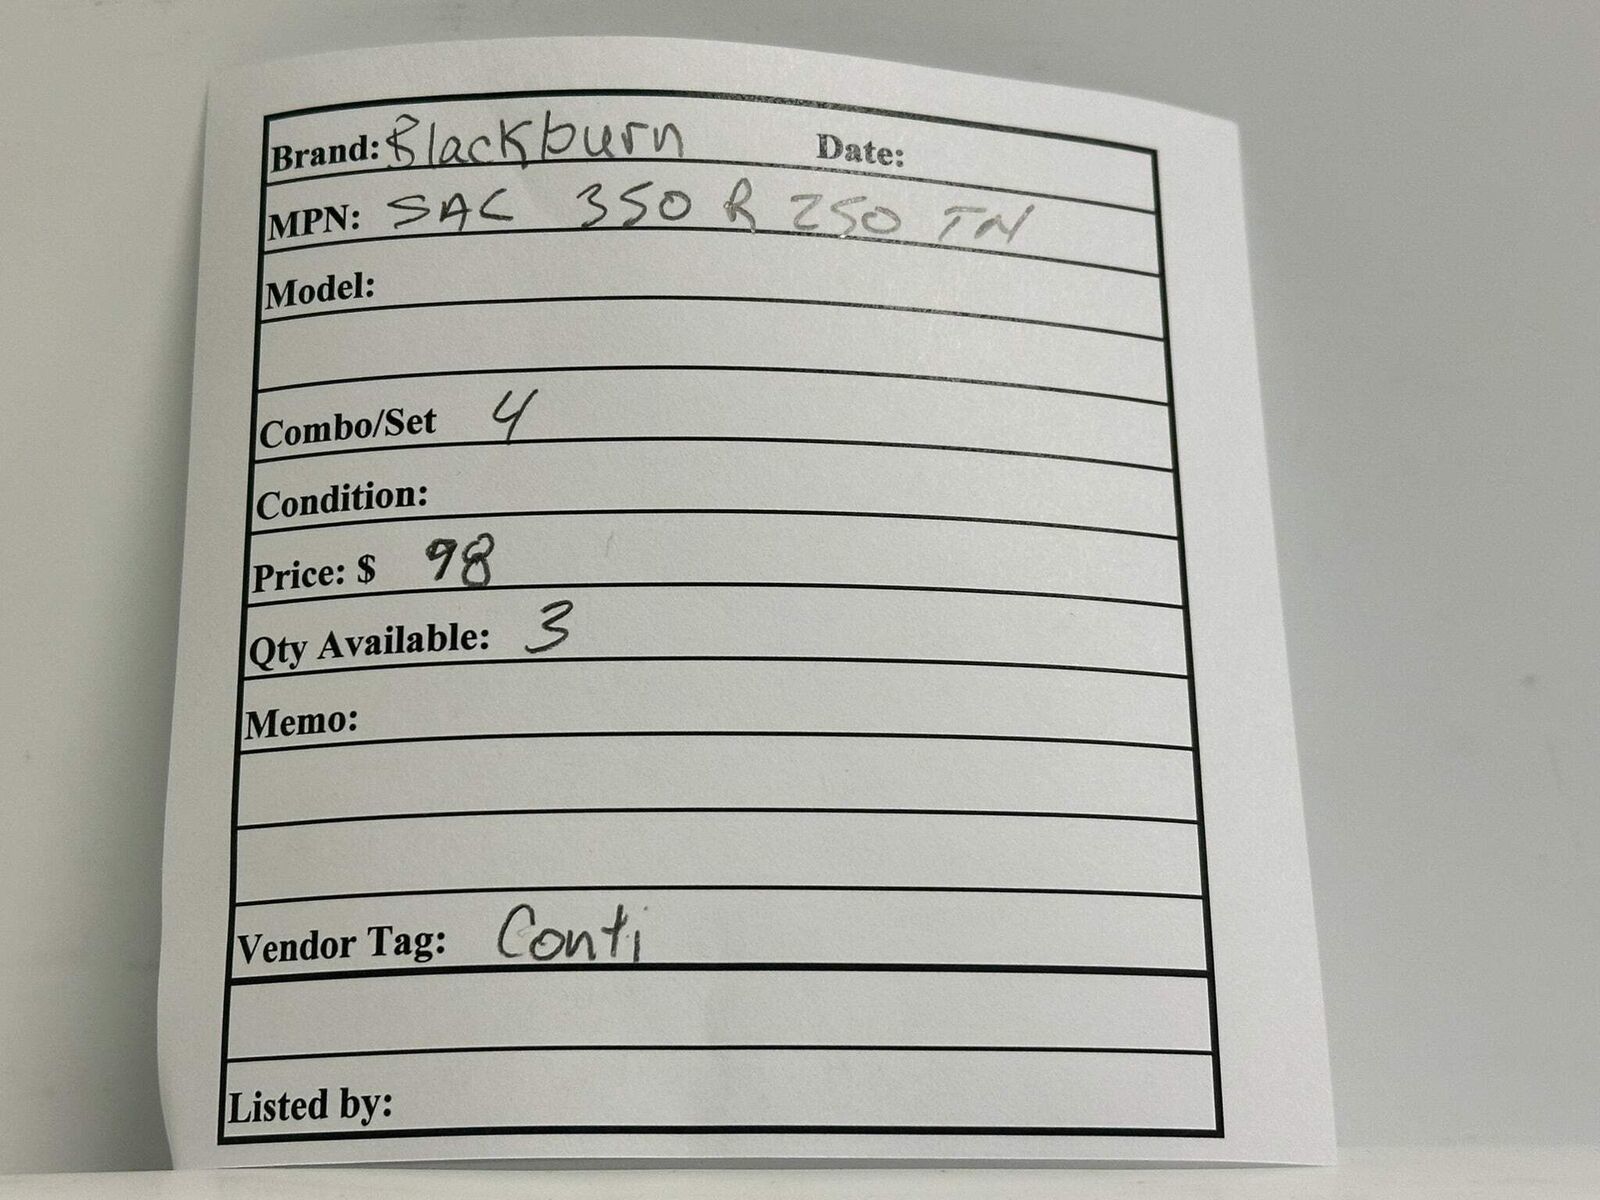 Brand: Blackburn Date:
MPN: SAC 350 R 250 TN
Model:
Combo/Set 4
Condition:
Price: $ 98
Qty Available: 3
Memo:
Vendor Tag: Conti
Listed by: